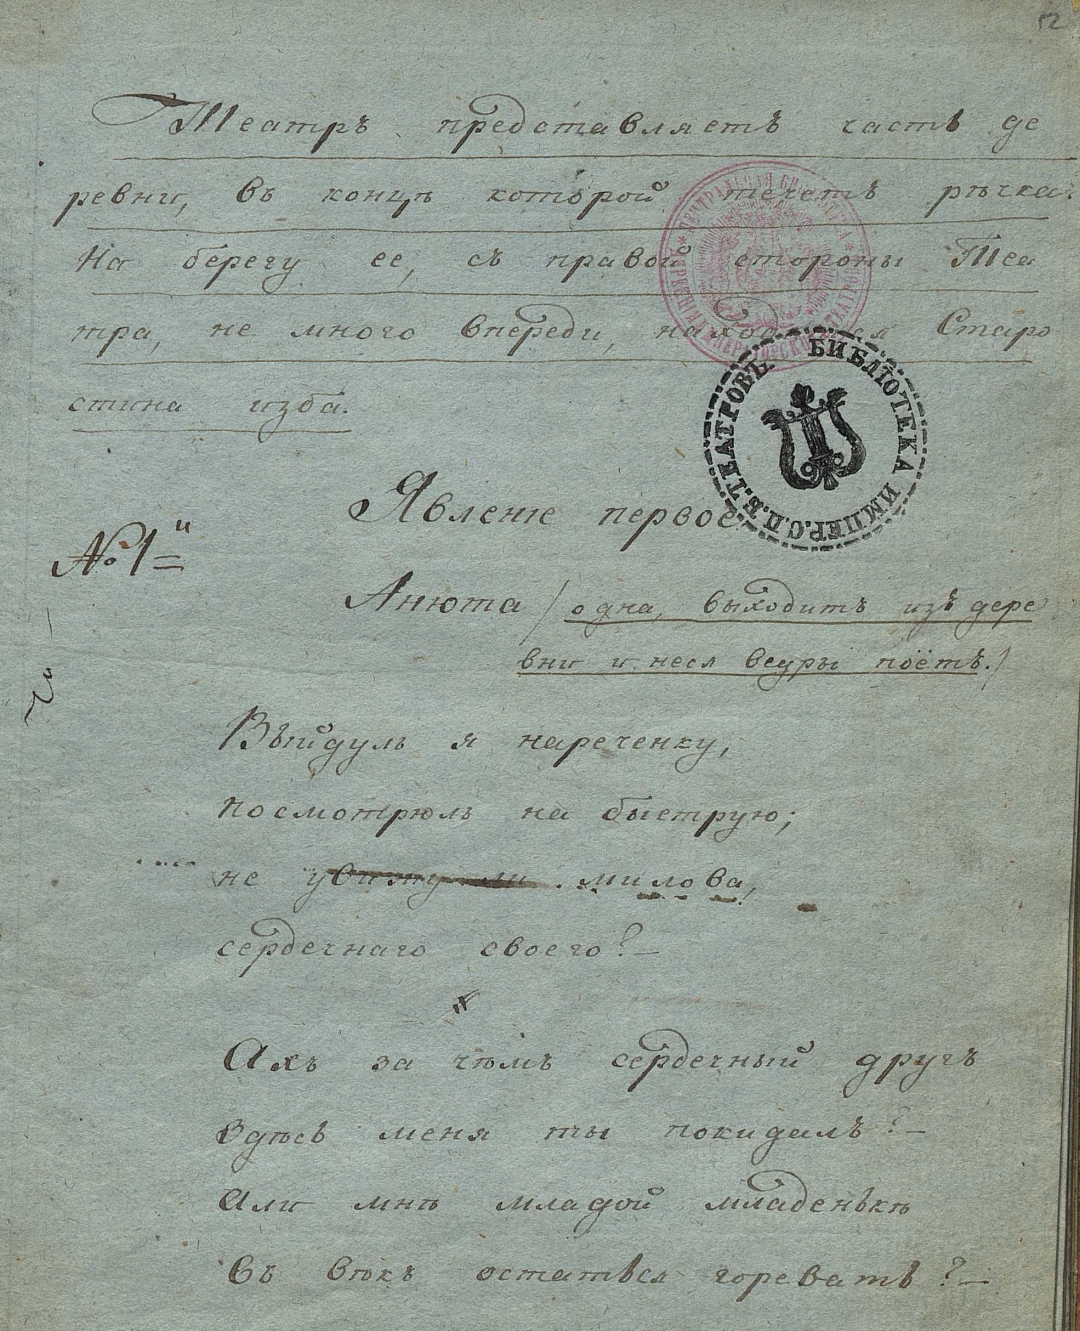 52
Театръ представляетъ часть де
ревни, въ концѣ которой течетъ рѣчка.
На берегу ее, съ правой стороны Теа
тра, не много впереди, находится Старо
стина изба.
БИБЛІОТЕКА ИМПЕР. С.П.Б. ТЕАТРОВЪ
Явленіе первое.
№ 1й
Анюта / одна, выходитъ изъ дере
вни и неся ведры поётъ. /
Выйдуль я нареченку,
посмотрюль на быструю;
не увижу ли милова,
сердечнаго своего? —
Ахъ за чѣмъ сердечный другъ
Здѣсь меня ты покидалъ? —
Али мнѣ младой младенькѣ
Въ вѣкъ остаться горевать? —